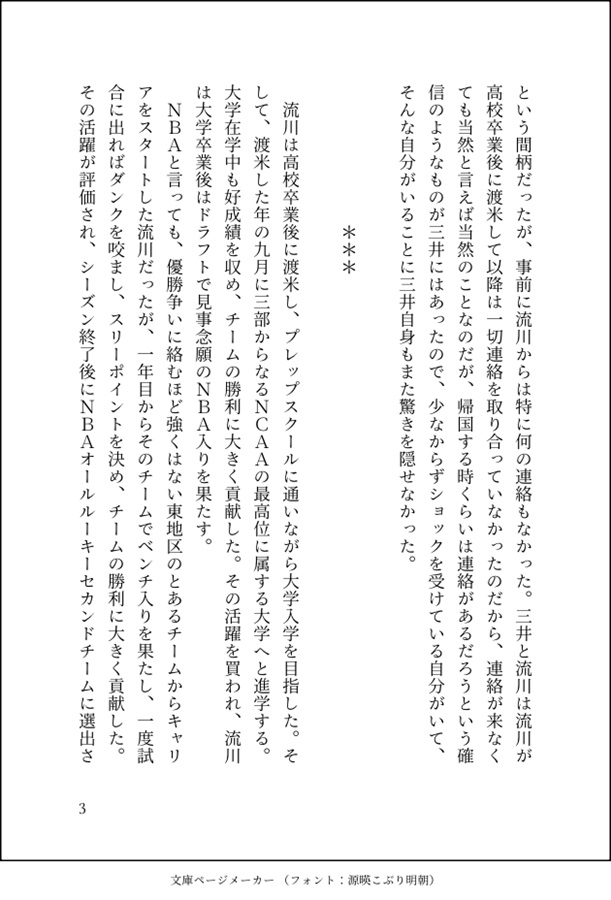 という間柄だったが、事前に流川からは特に何の連絡もなかった。三井と流川は流川が
高校卒業後に渡米して以降は一切連絡を取り合っていなかったのだから、連絡が来なく
ても当然と言えば当然のことなのだが、帰国する時くらいは連絡があるだろうという確
信のようなものが三井にはあったので、少なからずショックを受けている自分がいて、
そんな自分がいることに三井自身もまた驚きを隠せなかった。
＊＊＊
流川は高校卒業後に渡米し、プレップスクールに通いながら大学入学を目指した。そ
して、渡米した年の九月に三部からなるＮＣＡＡの最高位に属する大学へと進学する。
大学在学中も好成績を収め、チームの勝利に大きく貢献した。その活躍を買われ、流川
は大学卒業後はドラフトで見事念願のＮＢＡ入りを果たす。
ＮＢＡと言っても、優勝争いに絡むほど強くはない東地区のとあるチームからキャリ
アをスタートした流川だったが、一年目からそのチームでベンチ入りを果たし、一度試
合に出ればダンクを咬まし、スリーポイントを決め、チームの勝利に大きく貢献した。
その活躍が評価され、シーズン終了後にＮＢＡオールルーキーセカンドチームに選出さ
3
文庫ページメーカー（フォント：源暎こぶり明朝）